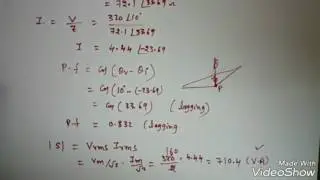 = 72.1 ∠33.69 Ω
I = V/Z = 320∠10° / 72.1∠33.69
I = 4.44 ∠-23.69
P.f = Cos(θv - θi)
= Cos(10° - (-23.69)
= Cos(33.69) (lagging)
P.f = 0.832 (lagging.
|S| = Vrms Irms
= Vm/√2 · Im/√2 = 160 320/2 · 4.44 = 710.4 (V.A)
Made With
VideoShow